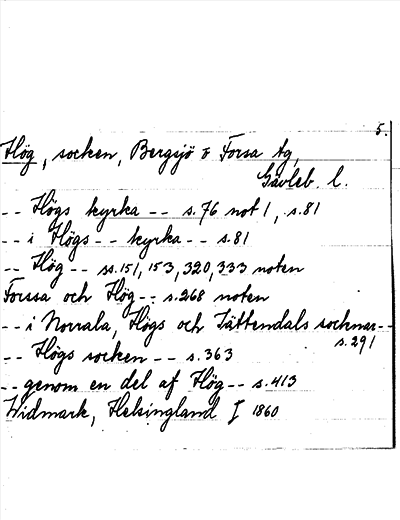 5.
Hög, socken, Bergsjö o Forsa tg,
Gävleb. l.
-- Högs kyrka -- s.76 not 1, s.81
-- i Högs -- kyrka -- s.81
-- Hög -- ss.151, 153, 320, 333 noten
Forssa och Hög -- s.268 noten
-- i Norrala, Högs och Jättendals socknar --
s.291
-- Högs socken -- s.363
-- genom en del af Hög -- s.413
Widmark, Helsingland I 1860